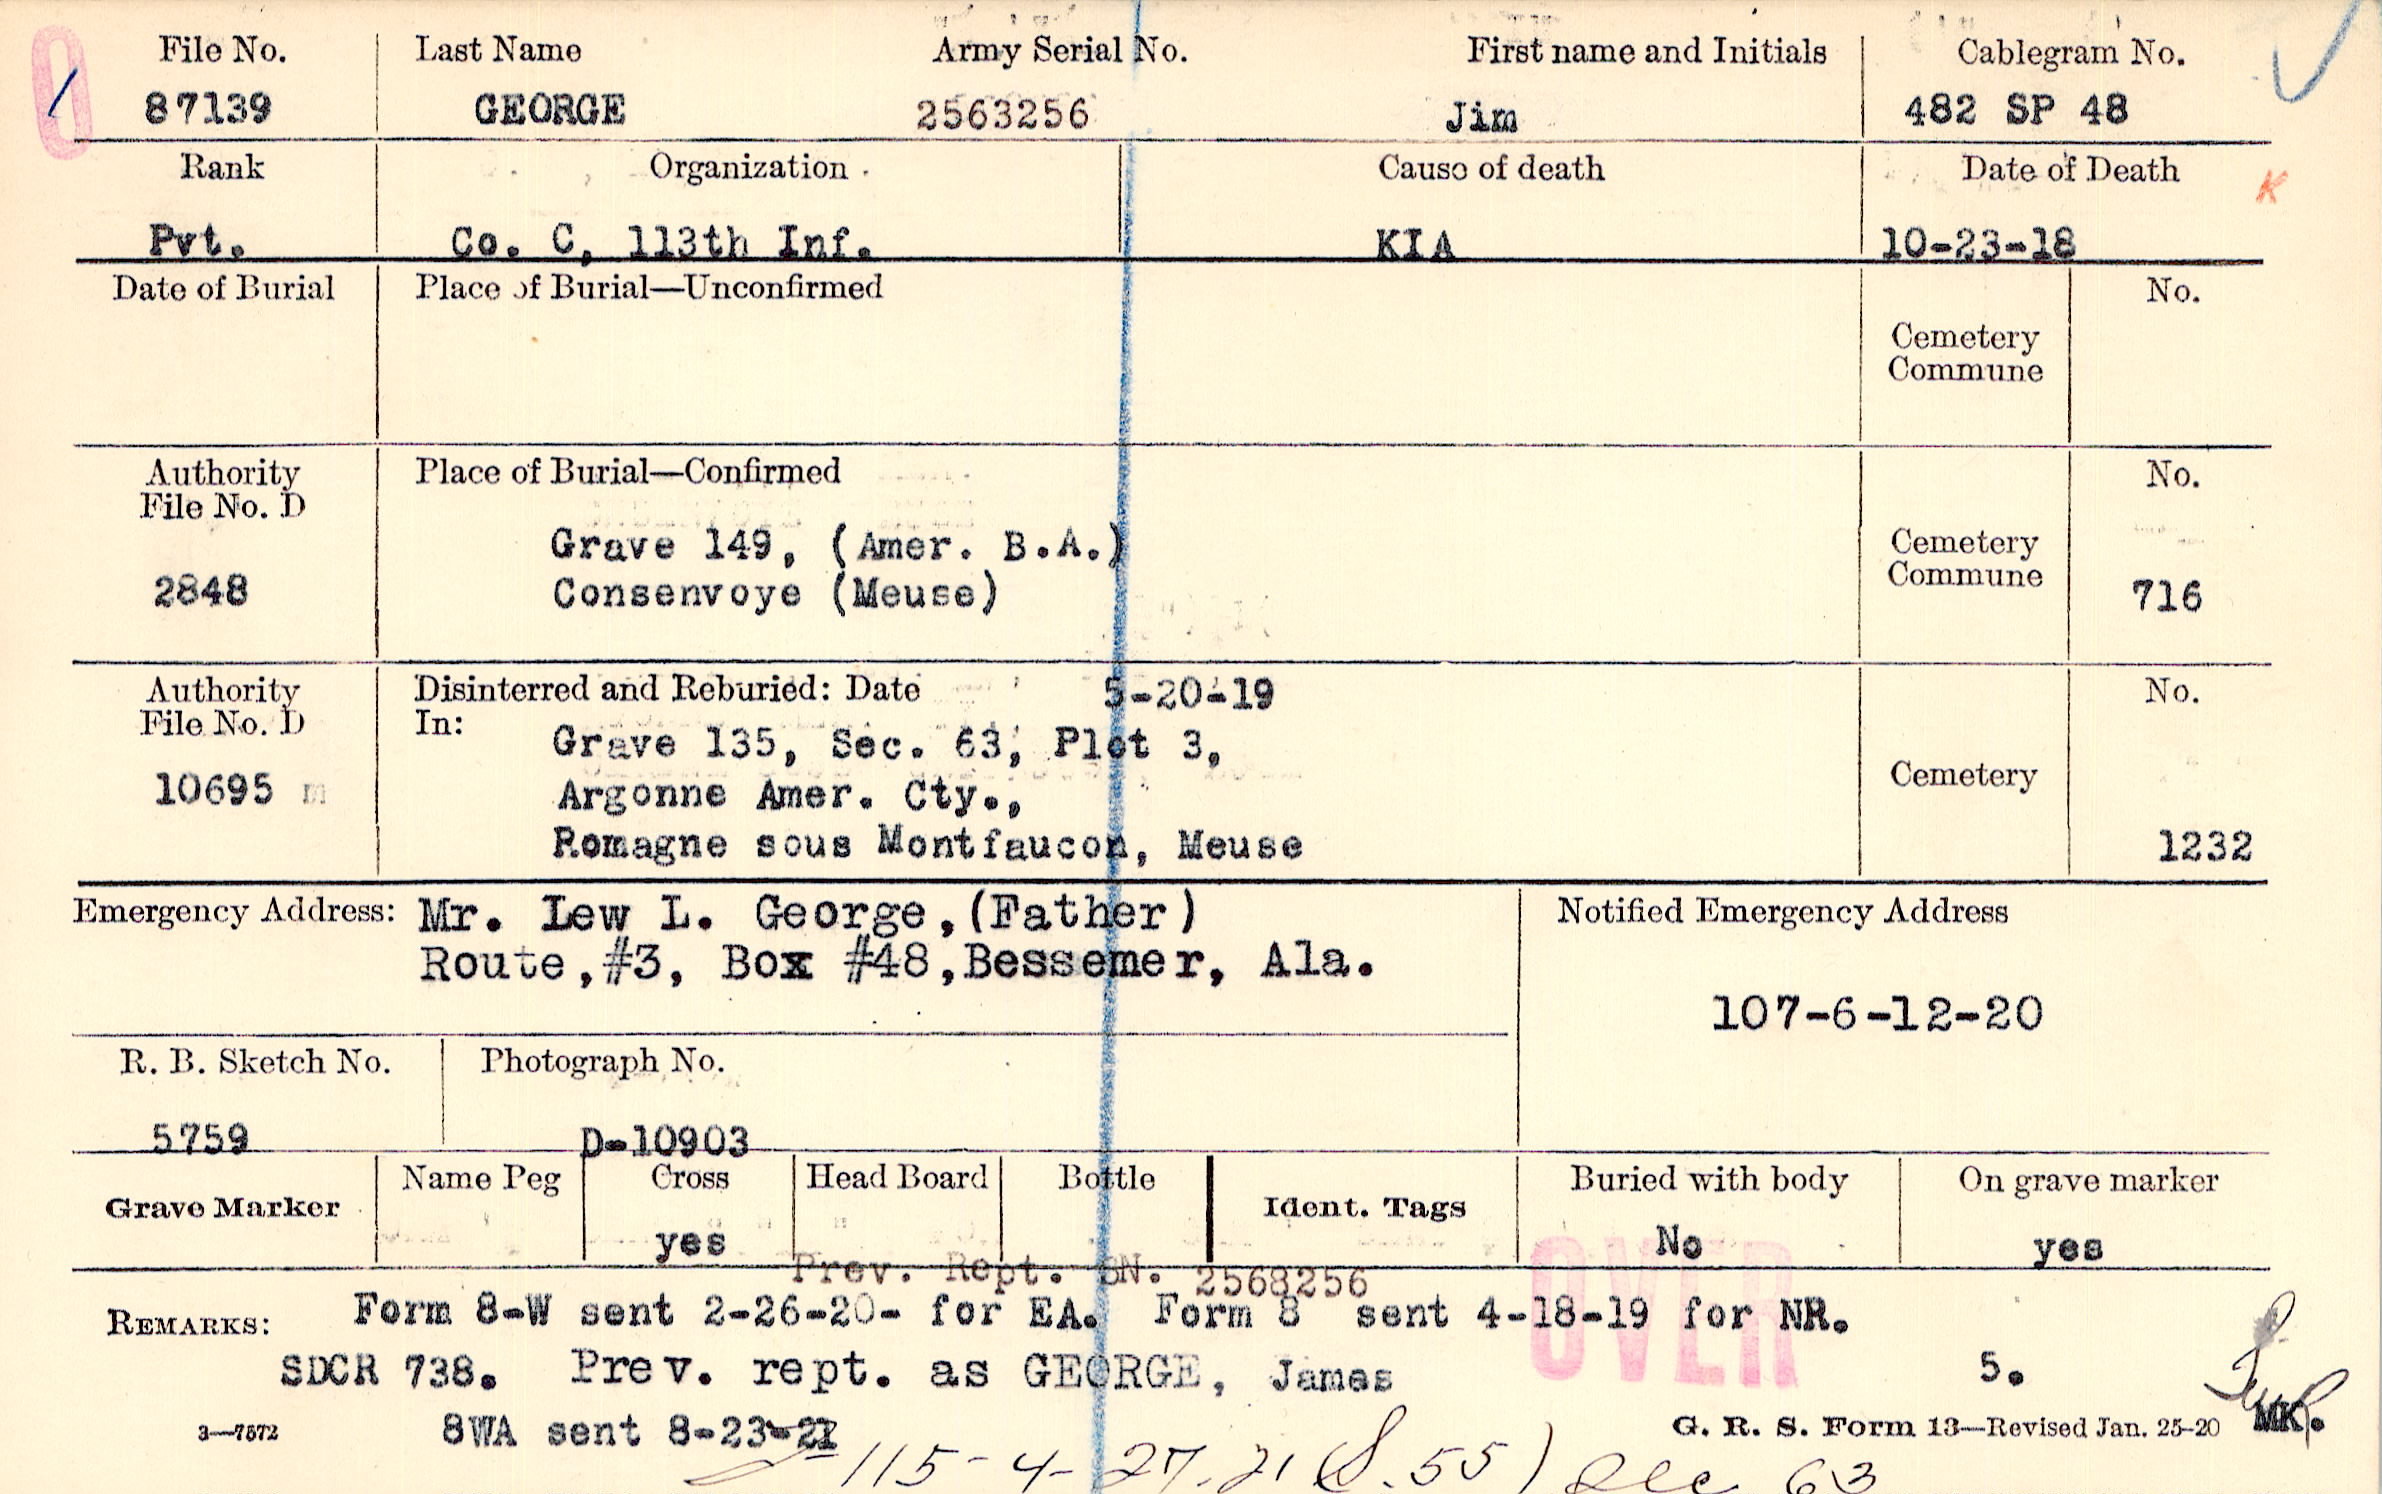 File No. Last Name Army Serial No. First name and Initials Cablegram No.
87139 GEORGE 2563256 Jim 482 SP 48
Rank Organization Cause of death Date of Death
K
Pvt. Co. C, 113th Inf. KIA 10-23-18
Date of Burial Place of Burial—Unconfirmed No.
Cemetery
Commune
Authority Place of Burial—Confirmed No.
File No. D
Grave 149, (Amer. B.A.) Cemetery
2848 Consenvoye (Meuse) Commune 716
Authority Disinterred and Reburied: Date 5-20-19 No.
File No. D In:
Grave 135, Sec. 63, Plot 3,
10695 m Argonne Amer. Cty., Cemetery
Romagne sous Montfaucon, Meuse 1232
Emergency Address: Mr. Lew L. George,(Father) Notified Emergency Address
Route,#3, Box #48,Bessemer, Ala.
107-6-12-20
R. B. Sketch No. Photograph No.
5759 D-10903
Grave Marker Name Peg Cross Head Board Bottle Ident. Tags Buried with body On grave marker
yes No yes
Prev. Rept. SN. 2568256
OVER
REMARKS: Form 8-W sent 2-26-20- for EA. Form 8 sent 4-18-19 for NR.
SDCR 738. Prev. rept. as GEORGE, James 5.
3—7572 8WA sent 8-23-21 G. R. S. Form 13—Revised Jan. 25-20 MK.
115-4-27-21 (S.55) Sec 63